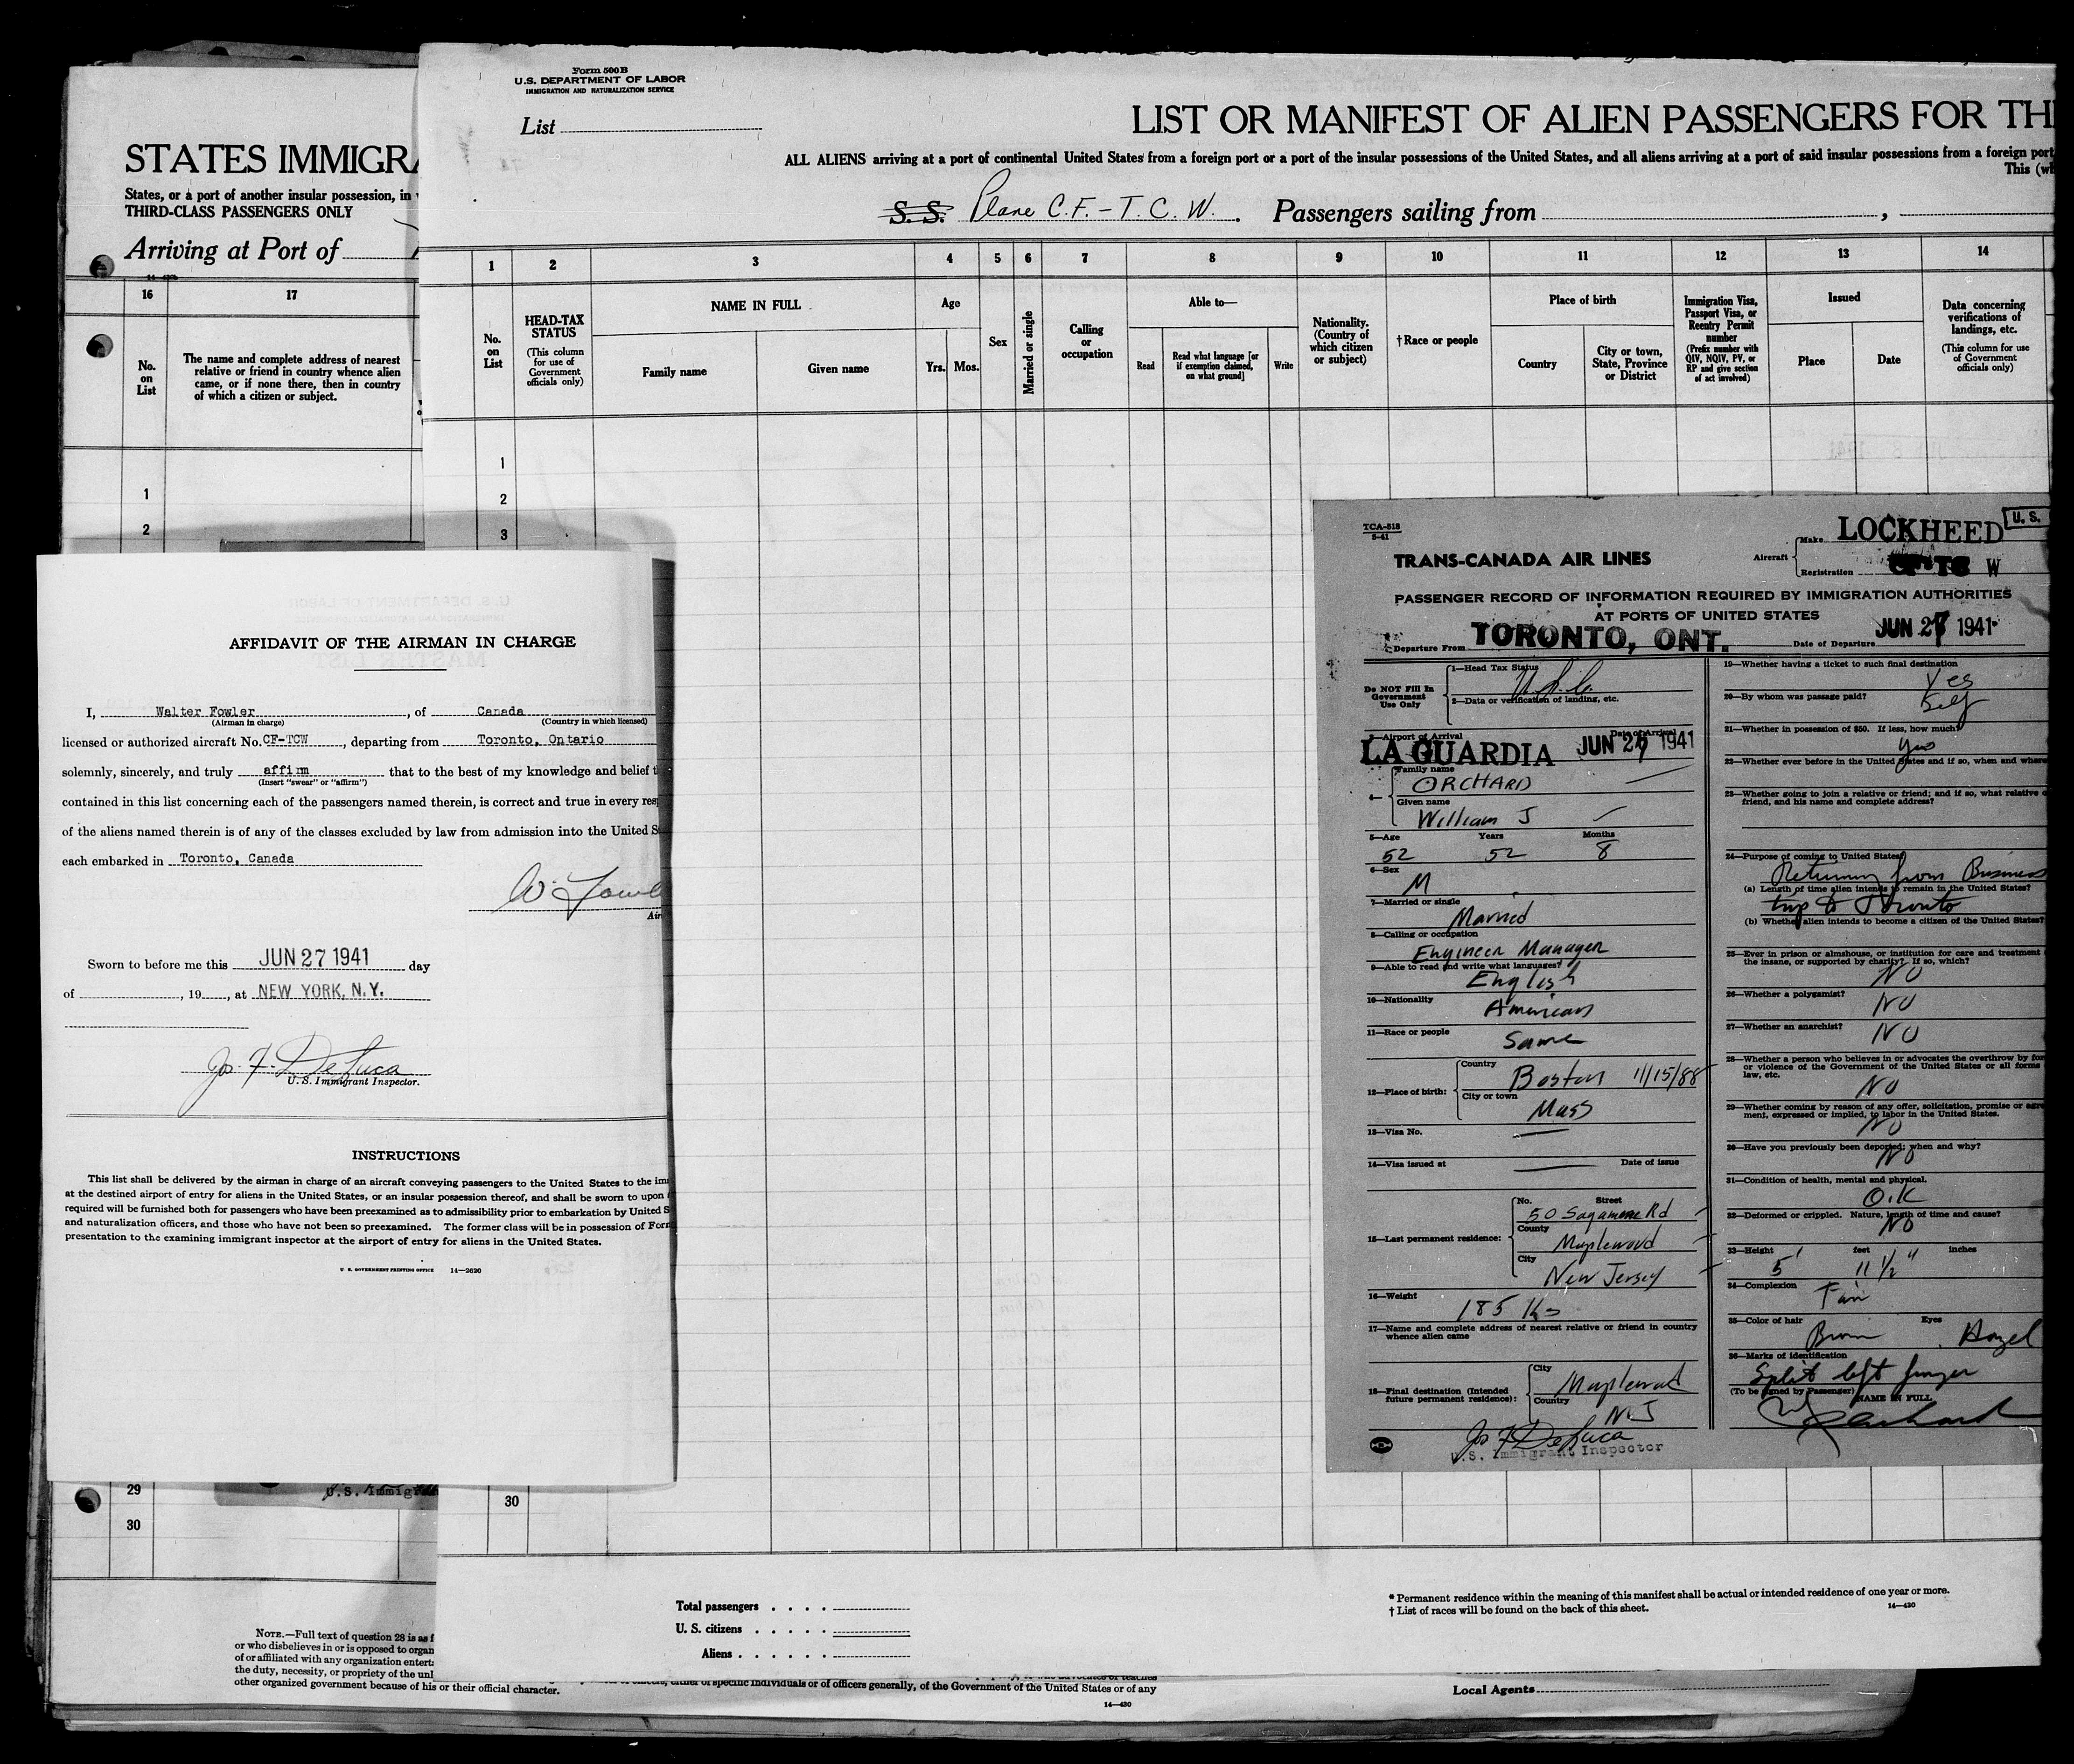 STATES IMMIGRA
States, or a port of another insular possession, in
THIRD-CLASS PASSENGERS ONLY
Arriving at Port of
16
17
No. on List
The name and complete address of nearest
relative or friend in country whence alien
came, or if none there, then in country
of which a citizen or subject.
1
2
Form 500B
U.S. DEPARTMENT OF LABOR
IMMIGRATION AND NATURALIZATION SERVICE
List
LIST OR MANIFEST OF ALIEN PASSENGERS FOR TH
ALL ALIENS arriving at a port of continental United States from a foreign port or a port of the insular possessions of the United States, and all aliens arriving at a port of said insular possessions from a foreign port
This (wh
S.S. Plane C.F.-T.C.W. Passengers sailing from
1 2 3 4 5 6 7 8 9 10 11 12 13 14
No. on List
HEAD-TAX STATUS
(This column for use of Government officials only)
NAME IN FULL
Family name
Given name
Age
Yrs. Mos.
Sex
Married or single
Calling or occupation
Able to—
Read
Read what language [or if exemption claimed, on what ground]
Write
Nationality. (Country of which citizen or subject)
†Race or people
Place of birth
Country
City or town, State, Province or District
Immigration Visa, Passport Visa, or Reentry Permit number
(Prefix number with QIV, NQIV, PV, or RP and give section of act involved)
Issued
Place
Date
Data concerning verifications of landings, etc.
(This column for use of Government officials only)
1
2
3
AFFIDAVIT OF THE AIRMAN IN CHARGE
I, Walter Fowler, of Canada
(Airman in charge) (Country in which licensed)
licensed or authorized aircraft No. CF-TCW, departing from Toronto, Ontario
solemnly, sincerely, and truly affirm that to the best of my knowledge and belief t
(Insert "swear" or "affirm")
contained in this list concerning each of the passengers named therein, is correct and true in every res
of the aliens named therein is of any of the classes excluded by law from admission into the United S
each embarked in Toronto, Canada
W. Fowl
Air
Sworn to before me this JUN 27 1941 day
of , 19 , at NEW YORK, N.Y.
Jos. F. DeLuca
U.S. Immigrant Inspector.
INSTRUCTIONS
This list shall be delivered by the airman in charge of an aircraft conveying passengers to the United States to the im
at the destined airport of entry for aliens in the United States, or an insular possession thereof, and shall be sworn to upon
required will be furnished both for passengers who have been preexamined as to admissibility prior to embarkation by United S
and naturalization officers, and those who have not been so preexamined. The former class will be in possession of Form
presentation to the examining immigrant inspector at the airport of entry for aliens in the United States.
U. S. GOVERNMENT PRINTING OFFICE 14—2620
TCA-518
5-41
TRANS-CANADA AIR LINES
U. S.
Aircraft
Make LOCKHEED
Registration W
PASSENGER RECORD OF INFORMATION REQUIRED BY IMMIGRATION AUTHORITIES
AT PORTS OF UNITED STATES
Departure From TORONTO, ONT. Date of Departure JUN 27 1941
Do NOT Fill In Government Use Only
1—Head Tax Status
2—Data or verification of landing, etc.
3—Airport of Arrival Date of Arrival
LA GUARDIA JUN 27 1941
4— Family name
ORCHARD
Given name
William J
5—Age Years Months
52 52 8
6—Sex
M
7—Married or single
Married
8—Calling or occupation
Engineer Manager
9—Able to read and write what languages?
English
10—Nationality
American
11—Race or people
Same
12—Place of birth:
Country
Boston 11/15/88
City or town
Mass
13—Visa No.
14—Visa issued at Date of issue
15—Last permanent residence:
No. Street
50 Sagamore Rd
County
Maplewood
City
New Jersey
16—Weight
185 lbs
17—Name and complete address of nearest relative or friend in country
whence alien came
18—Final destination (Intended future permanent residence):
City
Maplewood
Country
NJ
Jos F DeLuca
U.S. Immigrant Inspector
19—Whether having a ticket to such final destination
Yes
20—By whom was passage paid?
Self
21—Whether in possession of $50. If less, how much?
Yes
22—Whether ever before in the United States and if so, when and where
23—Whether going to join a relative or friend; and if so, what relative o
friend, and his name and complete address?
24—Purpose of coming to United States?
Returning from Business
(a) Length of time alien intends to remain in the United States?
trip to Toronto
(b) Whether alien intends to become a citizen of the United States?
25—Ever in prison or almshouse, or institution for care and treatment
the insane, or supported by charity? If so, which?
NO
26—Whether a polygamist?
NO
27—Whether an anarchist?
NO
28—Whether a person who believes in or advocates the overthrow by for
or violence of the Government of the United States or all forms
law, etc.
NO
29—Whether coming by reason of any offer, solicitation, promise or agre
ment, expressed or implied, to labor in the United States.
NO
30—Have you previously been deported; when and why?
NO
31—Condition of health, mental and physical.
O.K
32—Deformed or crippled. Nature, length of time and cause?
NO
33—Height feet inches
5' 11 1/2"
34—Complexion
Fair
35—Color of hair Eyes
Brown Hazel
36—Marks of identification
Split left finger
(To be signed by Passenger) NAME IN FULL
29
30
U.S. Immigr
30
Total passengers
U. S. citizens
Aliens
* Permanent residence within the meaning of this manifest shall be actual or intended residence of one year or more.
† List of races will be found on the back of this sheet.
14—430
NOTE.—Full text of question 28 is as f
or who disbelieves in or is opposed to organ
of or affiliated with any organization entert
the duty, necessity, or propriety of the unl
other organized government because of his or their official character.
either of specific individuals or of officers generally, of the Government of the United States or of any
14—430
Local Agents